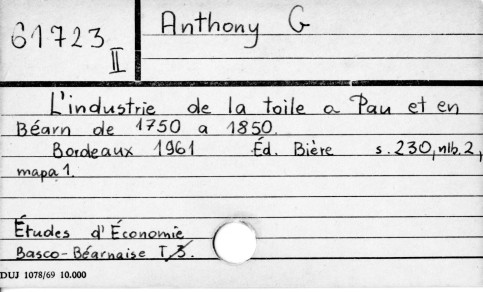 61723
II
Anthony G
L'industrie de la toile a Pau et en
Béarn de 1750 a 1850.
Bordeaux 1961 Éd. Bière s. 230, nlb. 2,
mapa 1.
Études d'Économie
Basco-Béarnaise T. 3.
DUJ 1078/69 10.000